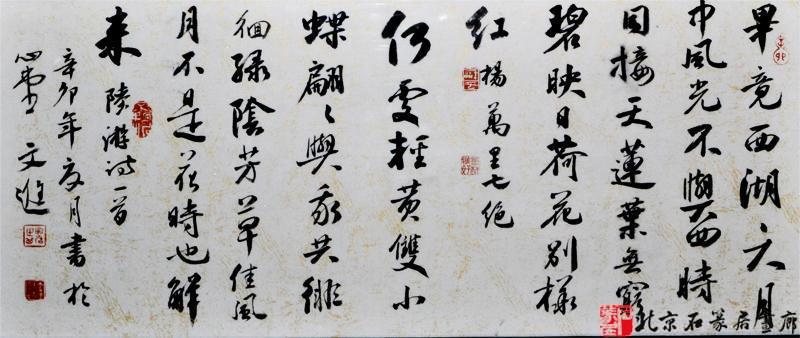 畢竟西湖六月
中風光不與四時
同接天蓮葉無窮
碧映日荷花别樣
紅 楊萬里七絕
何處輕黄雙小
蝶翩〻與我共徘
徊緑陰芳草佳風
月不是花時也解
来 陸游詩一首
辛卯年夏月書於
文進
辛卯
北京石篆居畫廊